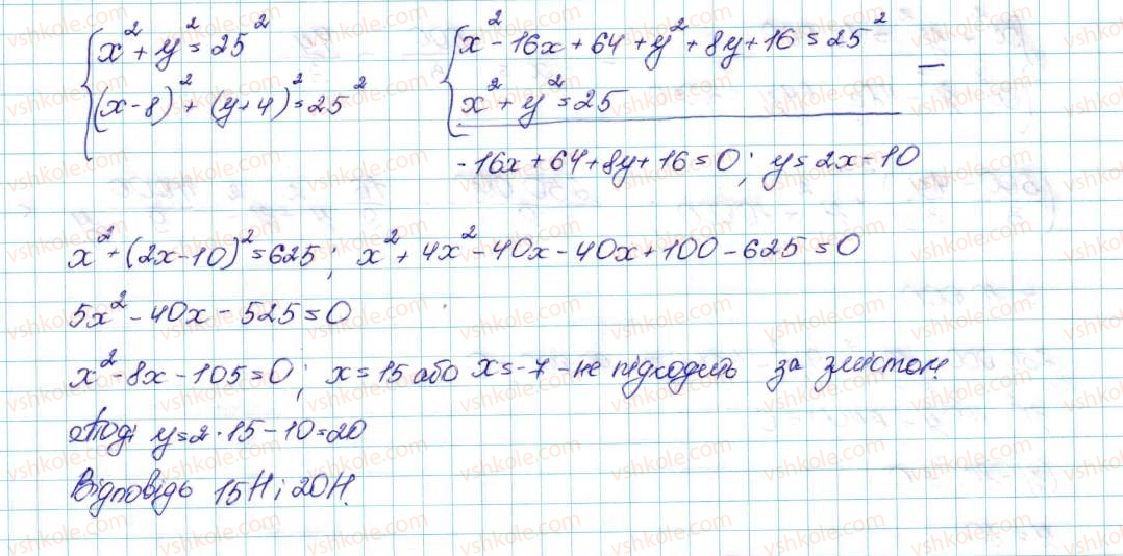 x² + y² = 25²
(x-8)² + (y+4)² = 25²
x² - 16x + 64 + y² + 8y + 16 = 25²
x² + y² = 25
-16x + 64 + 8y + 16 = 0; y = 2x - 10
x² + (2x-10)² = 625; x² + 4x² - 40x - 40x + 100 - 625 = 0
5x² - 40x - 525 = 0
x² - 8x - 105 = 0; x = 15 або x = -7 - не підходить за змістом.
Тоді y = 2·15 - 10 = 20
Відповідь 15Н і 20Н.